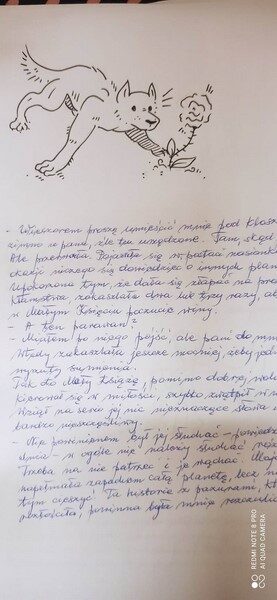 - Wieczorem proszę umieścić mnie pod klosz
zimno u pani, źle tu urządzone. Tam, skąd
Ale przerwała. Pojawiła się w postaci nasionka
okazji niczego się dowiedzieć o innych plan
Upokorzona tym, że dała się złapać na pro
kłamstwa, zakaszlała dwa lub trzy razy, ab
w Małym Księciu poczucie winy.
- A ten parawan?
- Miałem po niego pójść, ale pani do mni
Wtedy zakaszlała jeszcze mocniej, żeby jed
wyrzuty sumienia.
Tak to Mały Książę, pomimo dobrej woli
się w miłości, szybko zwątpił w
Wziął na serio jej nic nieznaczące słowa i
bardzo nieszczęśliwy.
- Nie powinienem był jej słuchać - powiedzia
dnia - w ogóle nie należy słuchać
Trzeba na nie patrzeć i je wąchać. Moja
napełniała zapachem całą planetę, lecz nie
tym cieszyć. Ta historia z pazurami, kt
rozzłościła, powinna była mnie rozczulić
REDMI NOTE 8 PRO
AI QUAD CAMERA